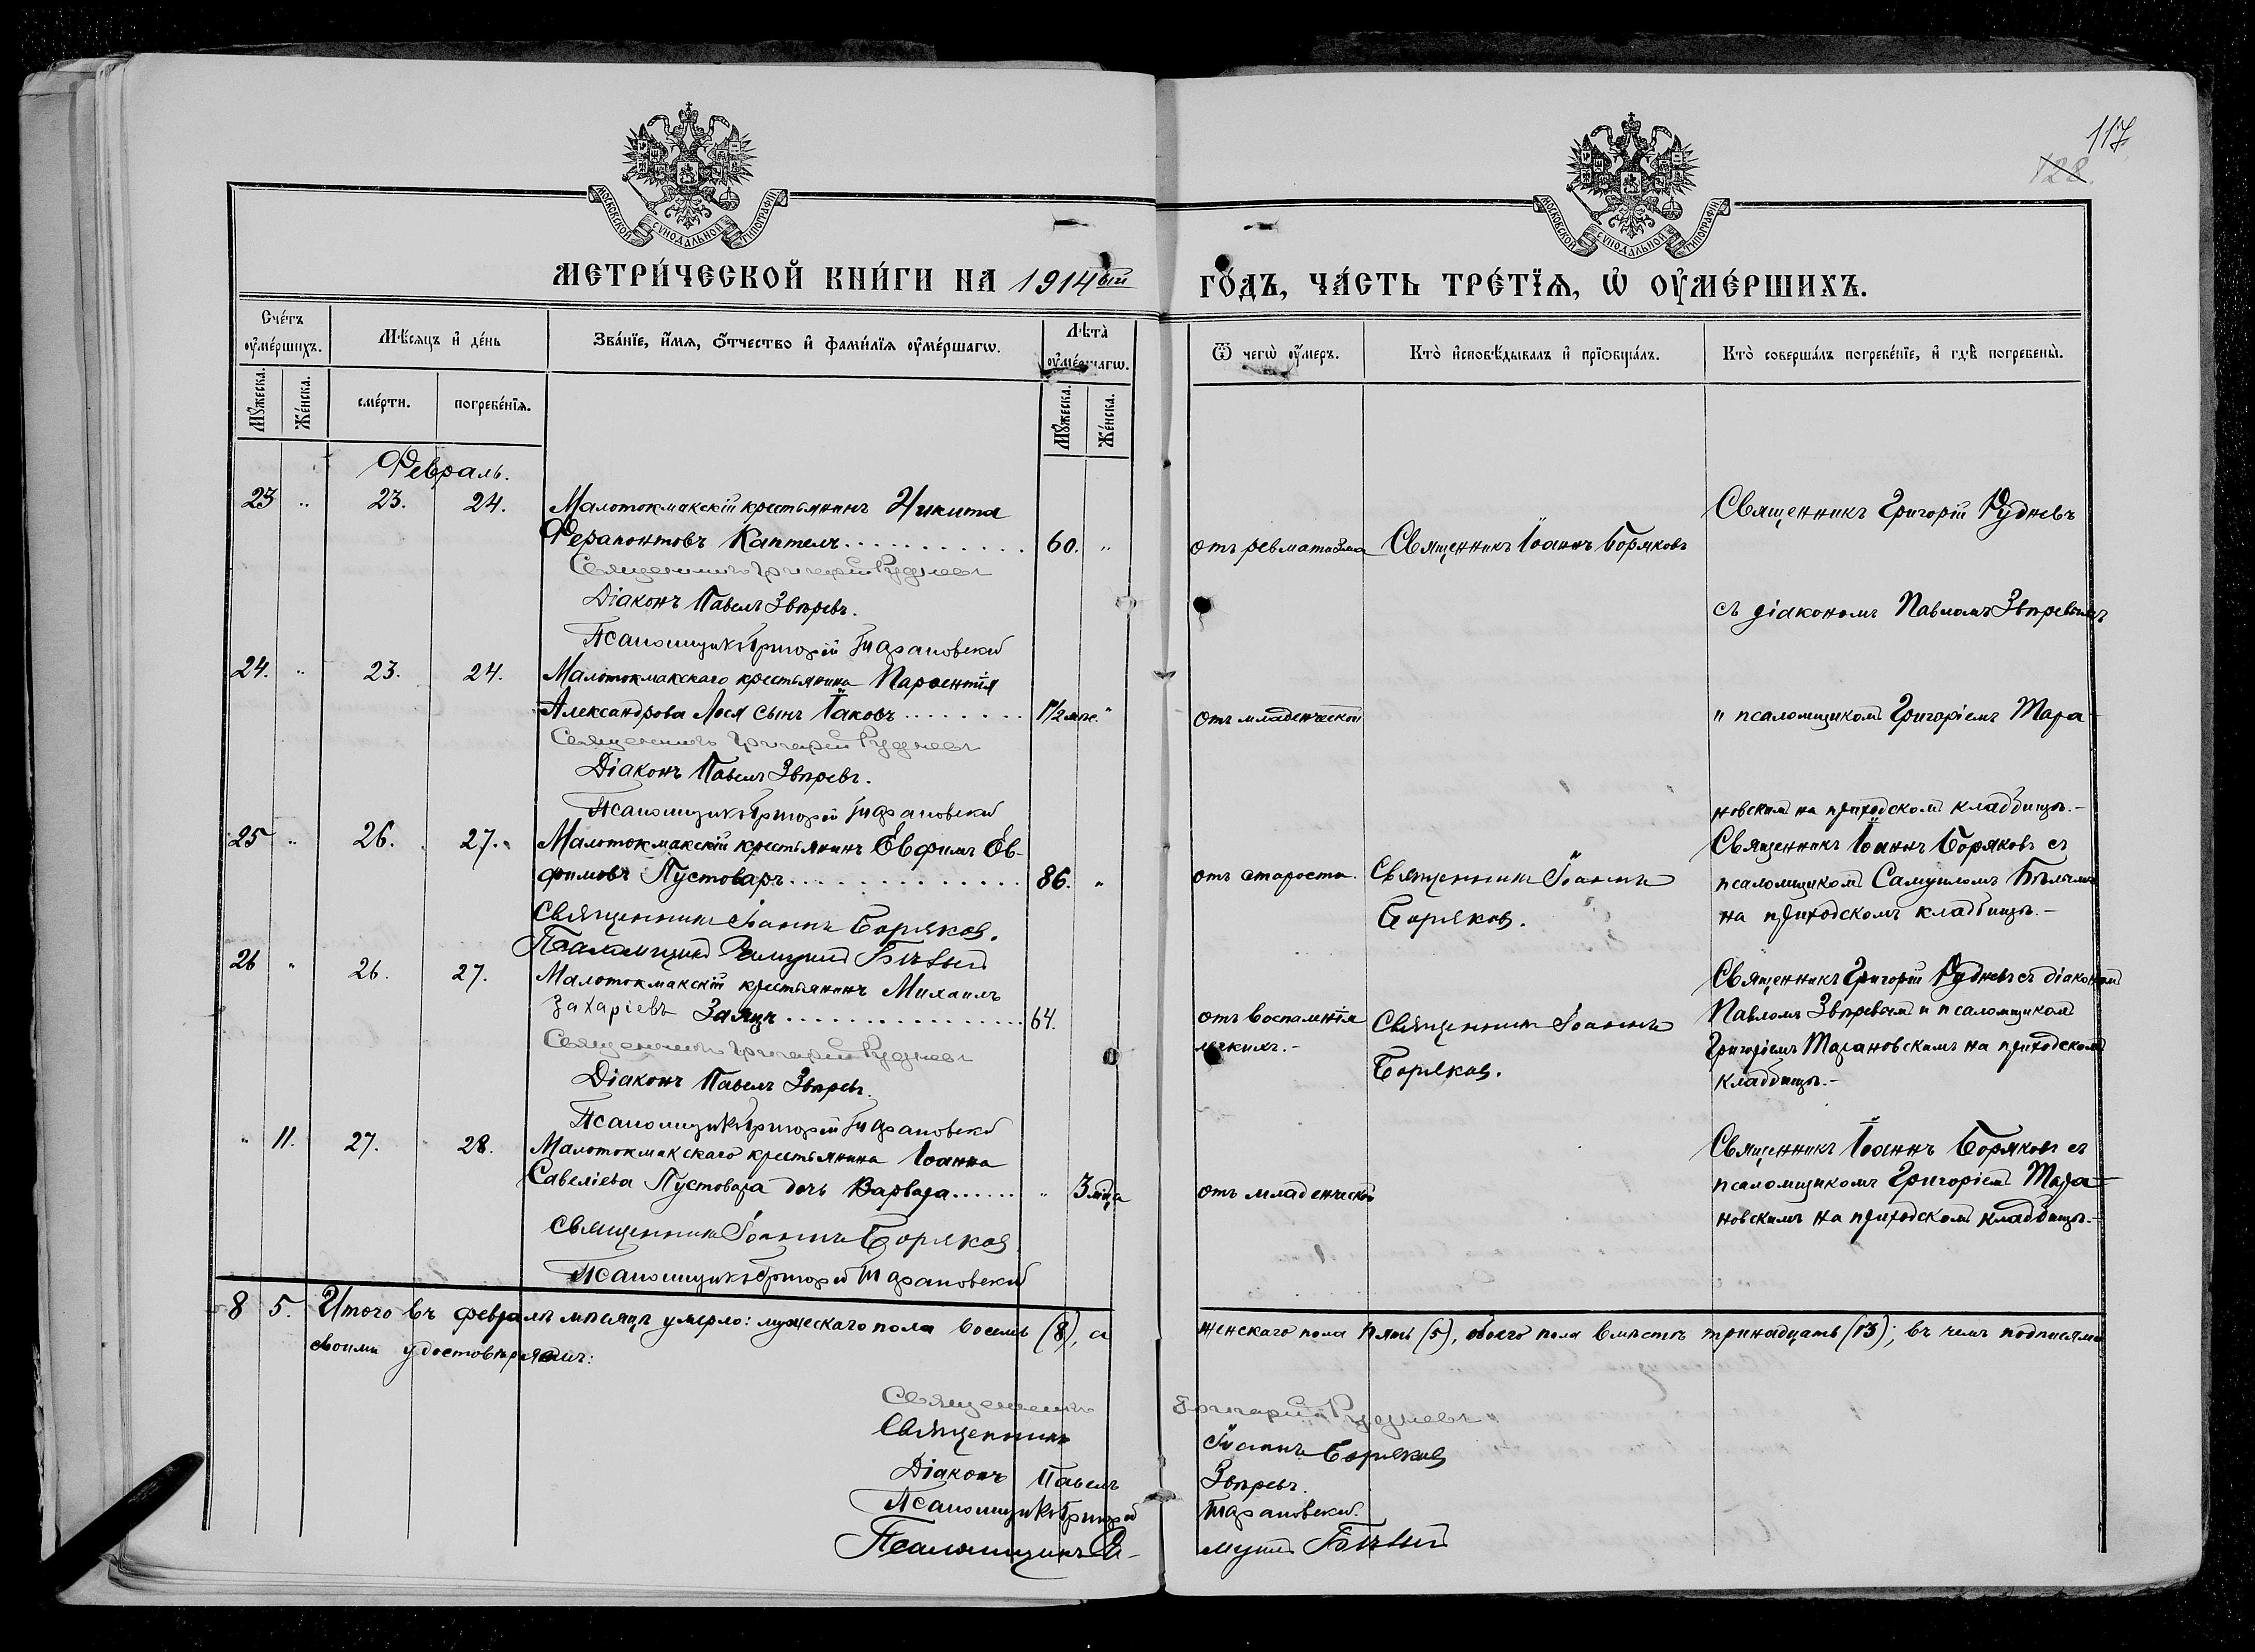 117
128.
МОСКОВСКОЙ СѴНОДАЛЬНОЙ ТИПОГРАФІИ
МОСКОВСКОЙ СѴНОДАЛЬНОЙ ТИПОГРАФІИ
МЕТРИ́ЧЕСКОЙ КНИ́ГИ НА 1914ый
ГО́ДЪ, ЧА́СТЬ ТРЕ́ТЇѦ, Ѡ҆ ОУ҆МЕ́РШИХЪ.
Сче́тъ оу҆ме́ршихъ.
Мꙋ́жеска.
Же́нска.
Мѣ́сѧцъ и҆ де́нь
сме́рти.
погребе́нїѧ.
Зва́нїе, и҆́мѧ, ѻ҆́тчество и҆ фами́лїѧ оу҆ме́ршагѡ.
Лѣ̑та оу҆ме́ршагѡ.
Мꙋ́жеска.
Же́нска.
Ѿ чегѡ̀ оу҆́меръ.
Кто̀ и҆сповѣ́дывалъ и҆ прїѡбща́лъ.
Кто̀ соверша́лъ погребе́нїе, и҆ гдѣ̀ погребены̀.
Февраль.
23 " 23. 24. Малотокмакскій крестьянинъ Никита
Ферапонтовъ Каптелъ 60. "
Священникъ Григорій Рудневъ
Діаконъ Павелъ Звѣревъ.
Псаломщикъ Григорій Тарановскій
отъ ревматизма
Священникъ Іоаннъ Боряковъ
Священникъ Григорій Рудневъ
съ діакономъ Павломъ Звѣревымъ
24. " 23. 24. Малотокмакскаго крестьянина Парѳентія
Александрова Лося сынъ Іаковъ 1½ "
Священникъ Григорій Рудневъ
Діаконъ Павелъ Звѣревъ.
Псаломщикъ Григорій Тарановскій
отъ младенческой
" псаломщикомъ Григоріемъ Тара-
новскимъ на приходскомъ кладбищѣ.-
25 " 26. 27. Малотокмакскій крестьянинъ Евфимъ Ев-
фимовъ Пустоваръ 86. "
Священникъ Іоаннъ Боряковъ.
Псаломщикъ Самуилъ Бѣлый
отъ старости.
Священникъ Іоаннъ
Боряковъ.
Священникъ Іоаннъ Боряковъ съ
псаломщикомъ Самуиломъ Бѣлымъ
на приходскомъ кладбищѣ.-
26 " 26. 27. Малотокмакскій крестьянинъ Михаилъ
Захаріевъ Заяцъ 64.
Священникъ Григорій Рудневъ
Діаконъ Павелъ Звѣревъ.
Псаломщикъ Григорій Тарановскій
отъ воспаленія
легкихъ.-
Священникъ Іоаннъ
Боряковъ.
Священникъ Григорій Рудневъ съ діакономъ
Павломъ Звѣревымъ и псаломщикомъ
Григоріемъ Тарановскимъ на приходскомъ
кладбищѣ.-
" 11. 27. 28. Малотокмакскаго крестьянина Іоанна
Савеліева Пустовара дочь Варвара " 3 мѣца
Священникъ Іоаннъ Боряковъ
Псаломщикъ Григорій Тарановскій
отъ младенческой
Священникъ Іоаннъ Боряковъ съ
псаломщикомъ Григоріемъ Тара-
новскимъ на приходскомъ кладбищѣ.-
8 5. Итого въ февралѣ мѣсяцѣ умерло: мужескаго пола восемь (8), а женскаго пола пять (5), обоего пола вмѣстѣ тринадцать (13); въ чемъ подписями
своими удостовѣряемъ:
Священникъ Григорій Рудневъ
Священникъ Іоаннъ Боряковъ
Діаконъ Павелъ Звѣревъ.
Псаломщикъ Григорій Тарановскій.
Псаломщикъ Са-муилъ Бѣлый